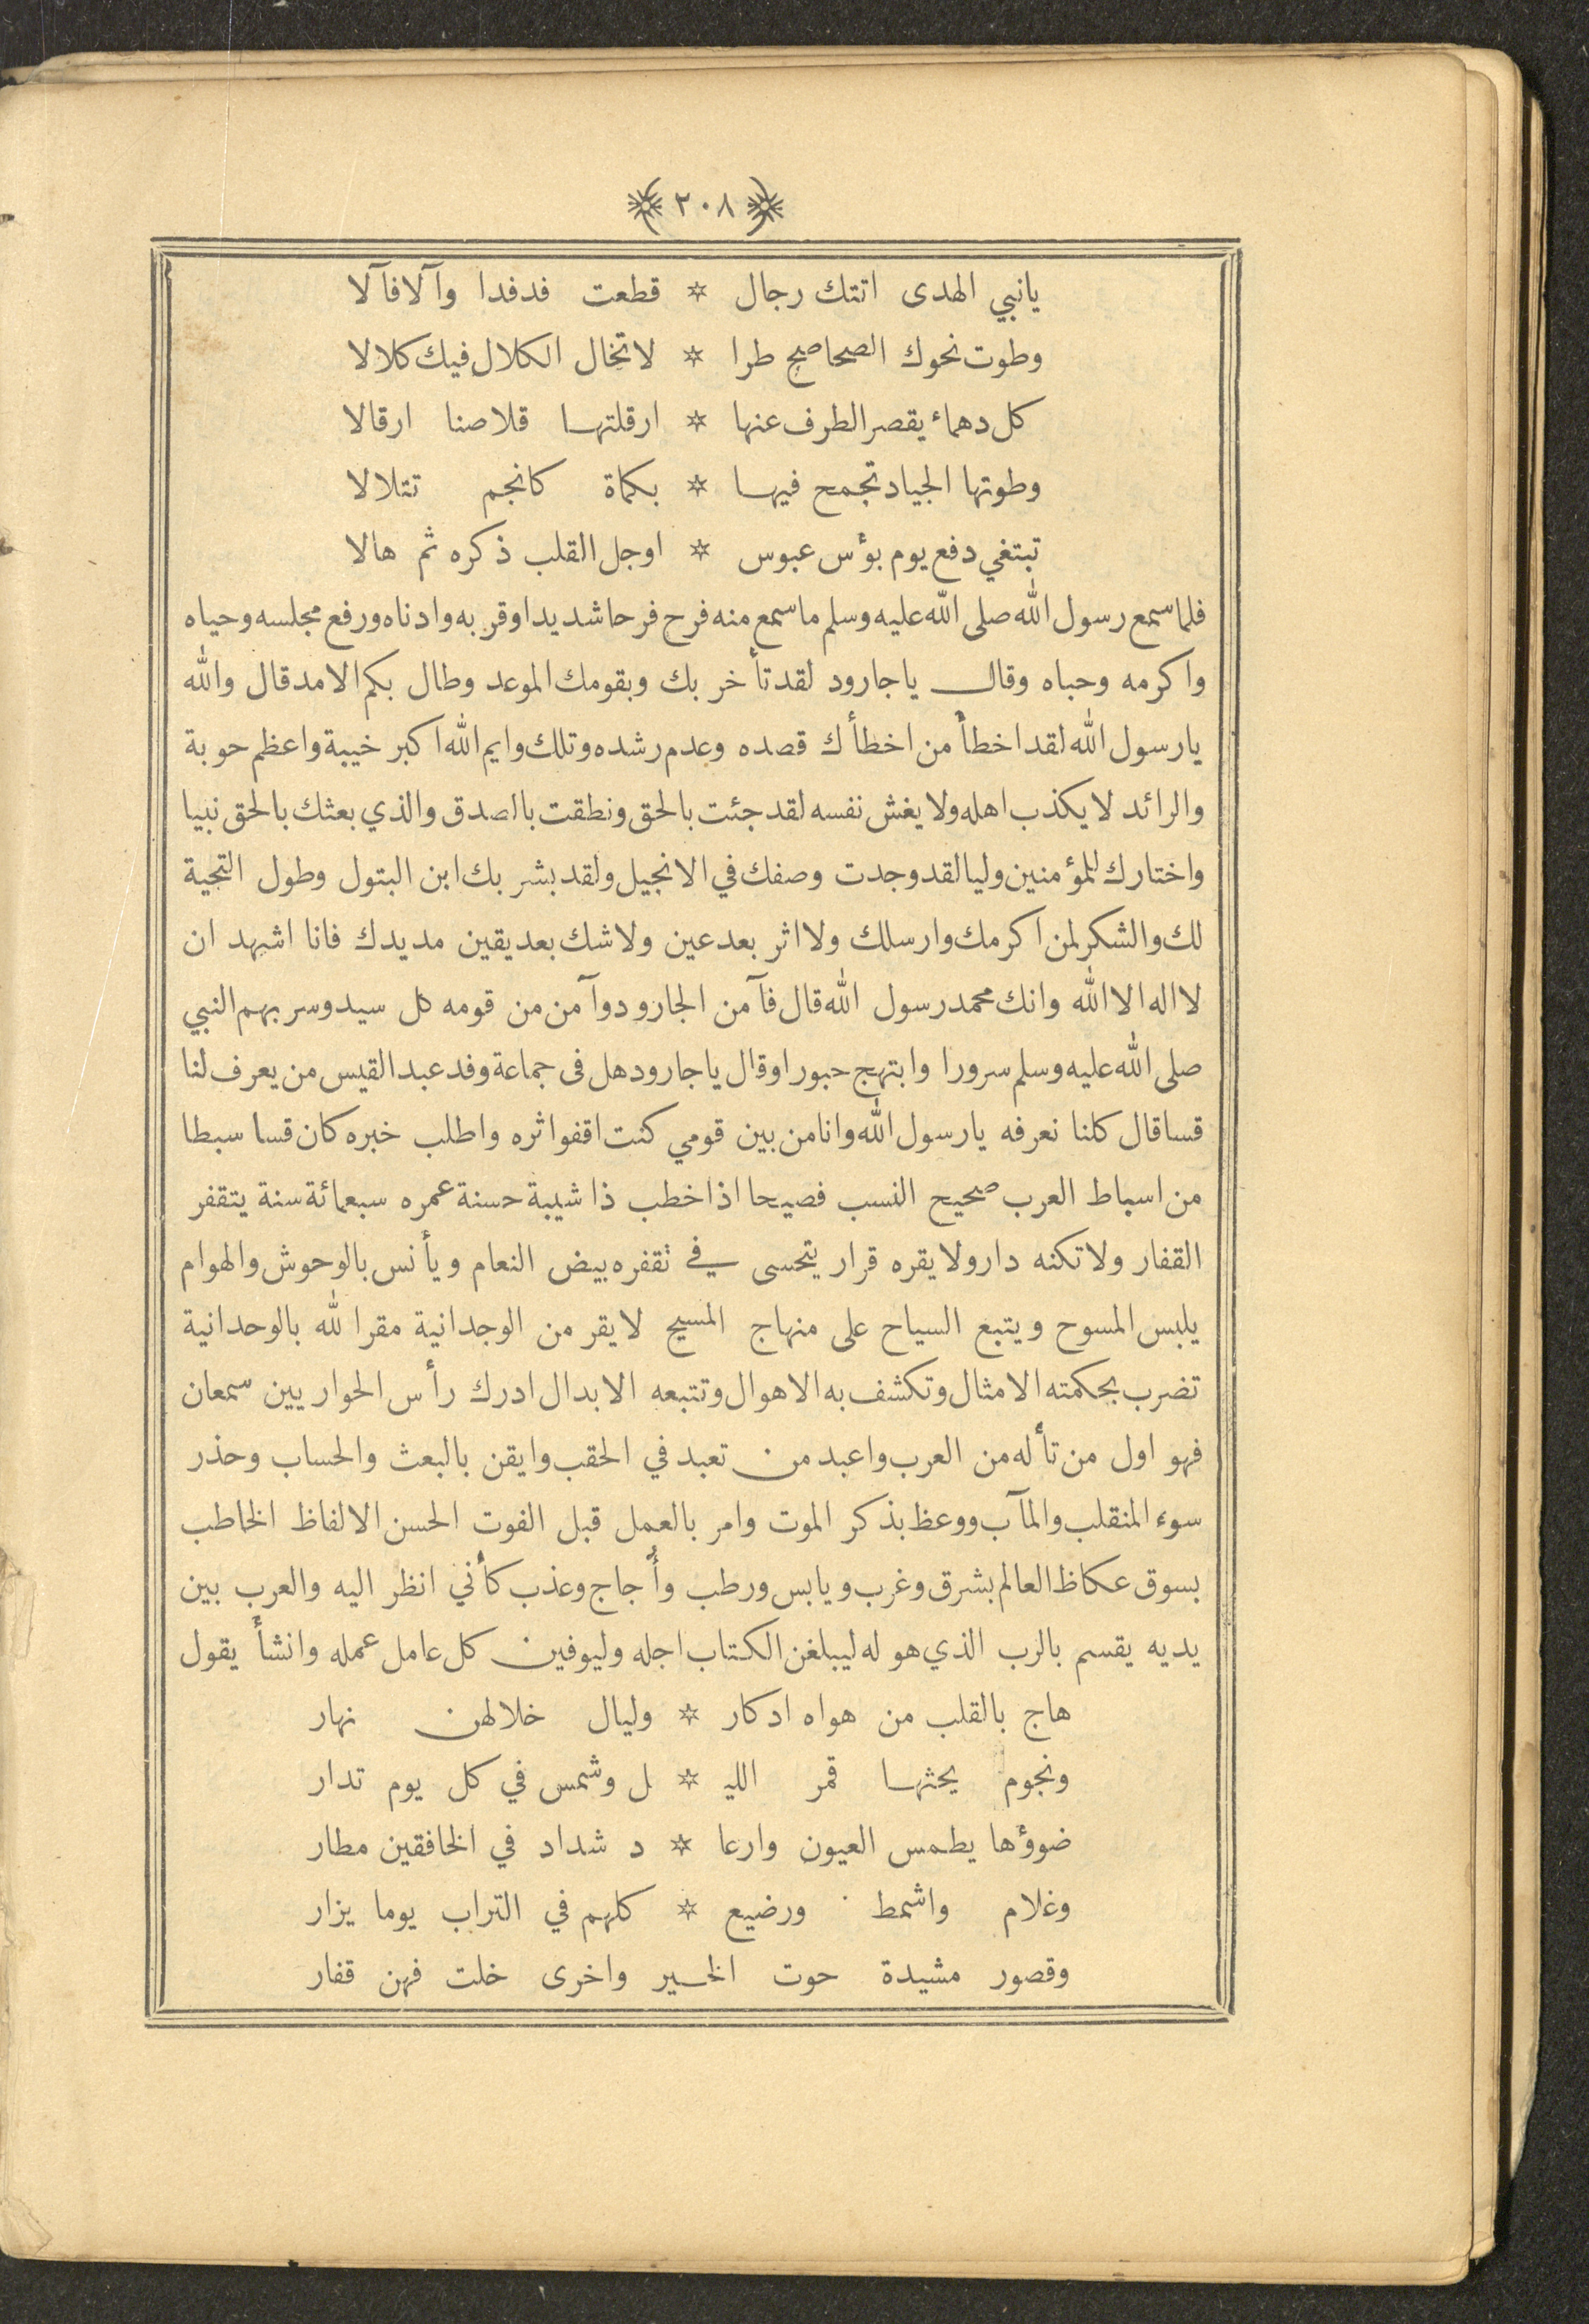 ٢٠٨
يانبي الهدى اتتك رجال * قطعت فدفدا وآلافآلا
وطوت نحوك الصحاصح طرا * لاتخال الكلال فيك كلالا
كل دهماء يقصر الطرف عنها * ارقلتها قلاصنا ارقالا
وطوتها الجياد تجمح فيها * بكماة كانجم تتلالا
تبتغي دفع يوم بؤس عبوس * اوجل القلب ذكره ثم هالا
فلما سمع رسول الله صلى الله عليه وسلم ماسمع منه فرح فرحا شديدا وقربه وادناه ورفع مجلسه وحياه
واكرمه وحباه وقال ياجارود لقد تأخر بك وبقومك الموعد وطال بكم الامد قال والله
يارسول الله لقد اخطأ من اخطأك قصده وعدم رشده وتلك وايم الله اكبر خيبة واعظم حوبة
والرائد لايكذب اهله ولايغش نفسه لقد جئت بالحق ونطقت بالصدق والذي بعثك بالحق نبيا
واختارك للمؤمنين وليا لقد وجدت وصفك في الانجيل ولقد بشر بك ابن البتول وطول التحية
لك والشكر لمن اكرمك وارسلك ولا اثر بعد عين ولاشك بعد يقين مد يدك فانا اشهد ان
لااله الا الله وانك محمد رسول الله قال فآمن الجارود وآمن من قومه كل سيد وسر بهم النبي
صلى الله عليه وسلم سرورا وابتهج حبورا وقال ياجارود هل فى جماعة وفد عبد القيس من يعرف لنا
قسا قال كلنا نعرفه يارسول الله وانا من بين قومي كنت اقفو اثره واطلب خبره كان قسا سبطا
من اسباط العرب صحيح النسب فصيحا اذا خطب ذا شيبة حسنة عمره سبعمائة سنة يتقفر
القفار ولاتكنه دار ولايقره قرار يتحسى في تقفره بيض النعام ويأنس بالوحوش والهوام
يلبس المسوح ويتبع السياح على منهاج المسيح لايقر من الوجدانية مقرا لله بالوحدانية
تضرب بحكمته الامثال وتكشف به الاهوال وتتبعه الابدال ادرك رأس الحواريين سمعان
فهو اول من تأله من العرب واعبد من تعبد في الحقب وايقن بالبعث والحساب وحذر
سوء المنقلب والمآب ووعظ بذكر الموت وامر بالعمل قبل الفوت الحسن الالفاظ الخاطب
بسوق عكاظ العالم بشرق وغرب ويابس ورطب وأُجاج وعذب كأني انظر اليه والعرب بين
يديه يقسم بالرب الذي هو له ليبلغن الكتاب اجله وليوفين كل عامل عمله وانشأ يقول
هاج بالقلب من هواه ادكار * وليال خلالهن نهار
ونجوم يحثها قمر الليـ * ـل وشمس في كل يوم تدار
ضوؤها يطمس العيون وارعا * د شداد في الخافقين مطار
وغلام واشمط ورضيع * كلهم في التراب يوما يزار
وقصور مشيدة حوت الخير واخرى خلت فهن قفار